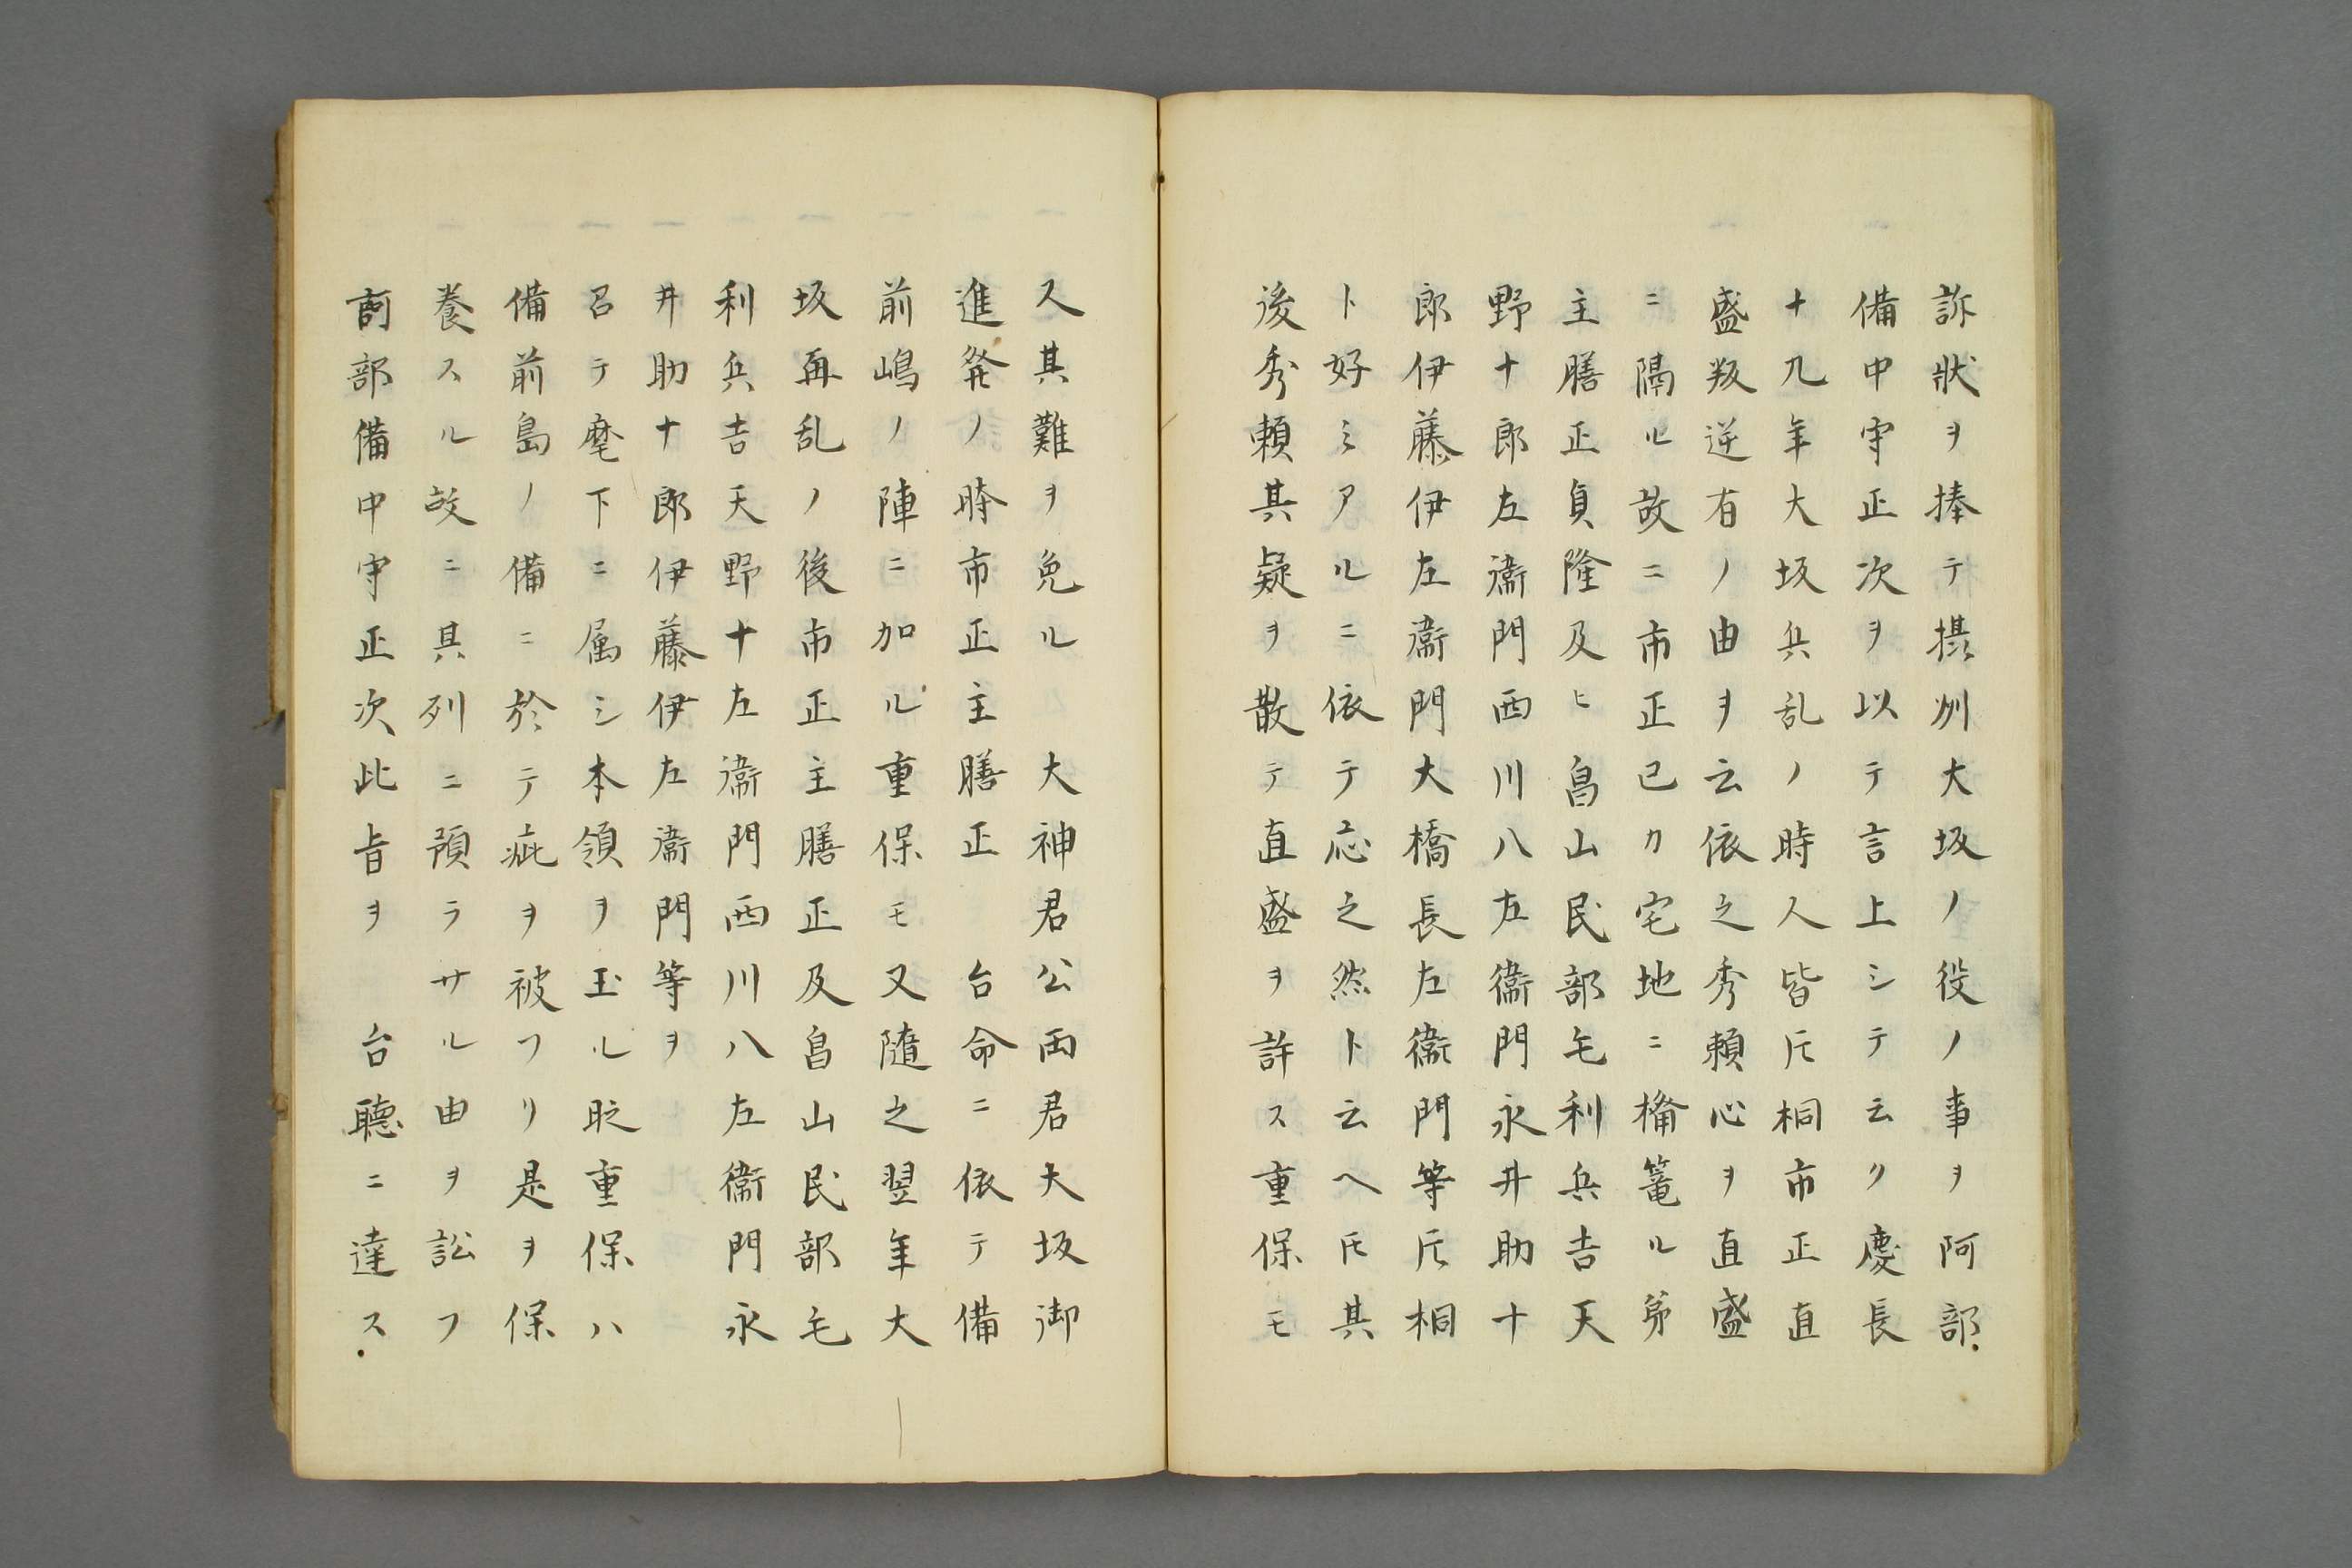 訴狀ヲ捧テ摂州大坂ノ役ノ事ヲ阿部
備中守正次ヲ以テ言上シテ云ク慶長
十九年大坂兵乱ノ時人皆片桐市正直
盛叛逆有ノ由ヲ云依之秀頼心ヲ直盛
ニ隔ル故ニ市正已カ宅地ニ楯篭ル弟
主膳正貞隆及ヒ畠山民部毛利兵吉天
野十郎左衞門西川八左衞門永井助十
郎伊藤伊左衞門大橋長左衞門等片桐
ト好ミアルニ依テ応之然ト云ヘ𪜈其
後秀頼其疑ヲ散テ直盛ヲ許ス重保モ
又其難ヲ免ル　大神君公両君大坂御
進発ノ時市正主膳正　台命ニ依テ備
前嶋ノ陣ニ加ル重保モ又随之翌年大
坂再乱ノ後市正主膳正及畠山民部毛
利兵吉天野十左衞門西川八左衞門永
井助十郎伊藤伊左衞門等ヲ
召テ麾下ニ属シ本領ヲ玉ル砌重保ハ
備前島ノ備ニ於テ疵ヲ被フリ是ヲ保
養スル故ニ其列ニ預ラサル由ヲ訟フ
訶部備中守正次此旨ヲ　台聴ニ達ス